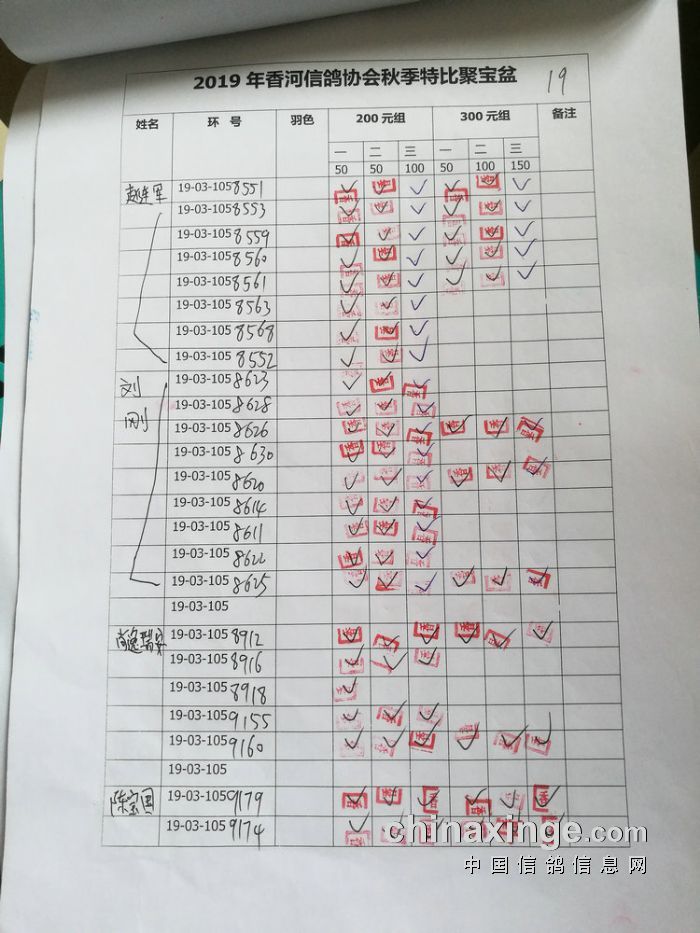 2019 年香河信鸽协会秋季特比聚宝盆 19
姓名 环 号 羽色 200 元组 300 元组 备注
一 二 三 一 二 三
50 50 100 50 100 150
赵连军 19-03-105 8551 ✓ ✓ ✓ ✓ ✓ ✓
19-03-105 8553 ✓ ✓ ✓ ✓ ✓ ✓
19-03-105 8559 ✓ ✓ ✓ ✓ ✓ ✓
19-03-105 8560 ✓ ✓ ✓ ✓ ✓ ✓
19-03-105 8561 ✓ ✓ ✓ ✓ ✓ ✓
19-03-105 8563 ✓ ✓ ✓
19-03-105 8568 ✓ ✓ ✓
19-03-105 8552 ✓ ✓ ✓
刘刚 19-03-105 8623 ✓ ✓ ✓
19-03-105 8628 ✓ ✓ ✓
19-03-105 8626 ✓ ✓ ✓ ✓ ✓ ✓
19-03-105 8630 ✓ ✓ ✓
19-03-105 8620 ✓ ✓ ✓ ✓ ✓ ✓
19-03-105 8614 ✓ ✓ ✓
19-03-105 8611 ✓ ✓ ✓
19-03-105 8622 ✓ ✓ ✓
19-03-105 8625 ✓ ✓ ✓ ✓ ✓ ✓
19-03-105
19-03-105 8912 ✓ ✓ ✓ ✓ ✓ ✓
19-03-105 8916 ✓ ✓ ✓
19-03-105 8918 ✓
19-03-105 9155 ✓ ✓ ✓
19-03-105 9160 ✓ ✓ ✓ ✓ ✓ ✓
19-03-105
陈宝国 19-03-105 9179 ✓ ✓ ✓ ✓ ✓ ✓
19-03-105 9174 ✓ ✓ ✓ ✓ ✓ ✓
chinaxinge.com
中国信鸽信息网